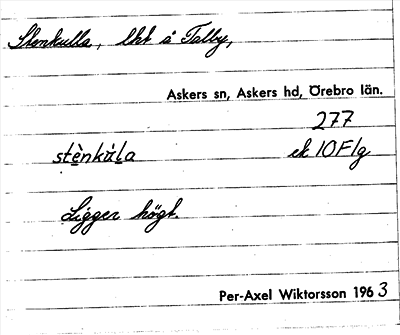 Stenkulla, lht å Talby,
Askers sn, Askers hd, Örebro län.
277
stènkùla ek 10F/g
Ligger högt.
Per-Axel Wiktorsson 1963